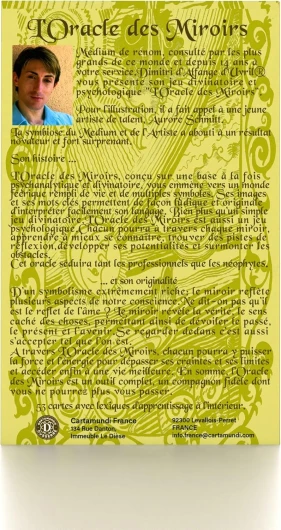 L'Oracle des Miroirs
Médium de renom, consulté par les plus
grands de ce monde et depuis 14 ans à
votre service, Dimitri d'Alfange d'Uvril®
vous présente son jeu divinatoire et
psychologique "L'Oracle des Miroirs
Pour l'illustration, il a fait appel à une jeune
artiste de talent, Aurore Schmitt.
La symbiose du Médium et de l'Artiste a abouti à un résultat
novateur et fort surprenant.
Son histoire ...
L'Oracle des Miroirs, conçu sur une base à la fois
psychanalytique et divinatoire, vous emmène vers un monde
féérique rempli de vie et de multiples symboles. Ses images
et ses mots clés permettent de façon ludique et originale
d'interpréter facilement son langage. Bien plus qu'un simple
jeu divinatoire, L'Oracle des Miroirs est aussi un jeu
psychologique. Chacun pourra à travers chaque miroir,
apprendre à mieux se connaître, trouver des pistes de
réflexion, développer ses potentialités et surmonter les
obstacles.
Cet oracle séduira tant les professionnels que les néophytes.
... et son originalité
D'un symbolisme extrêmement riche, le miroir reflète
plusieurs aspects de notre conscience. Ne dit-on pas qu'il
est le reflet de l'âme ? Le miroir révèle la vérité, le sens
caché des choses, permettant ainsi de dévoiler le passé,
le présent et l'avenir. Se regarder dedans c'est aussi
s'accepter tel que l'on est.
A travers L'Oracle des Miroirs, chacun pourra y puiser
la force et l'énergie pour dépasser ses craintes et ses limites
et accéder enfin à une vie meilleure. En somme, L'Oracle
des Miroirs est un outil complet, un compagnon fidèle dont
vous ne pourrez plus vous passer.
53 cartes avec lexiques d'apprentissage à l'intérieur.
Cartamundi France
134 Rue Danton,
Immeuble Le Dièse
92300 Levallois-Perret
FRANCE
info.france@cartamundi.com